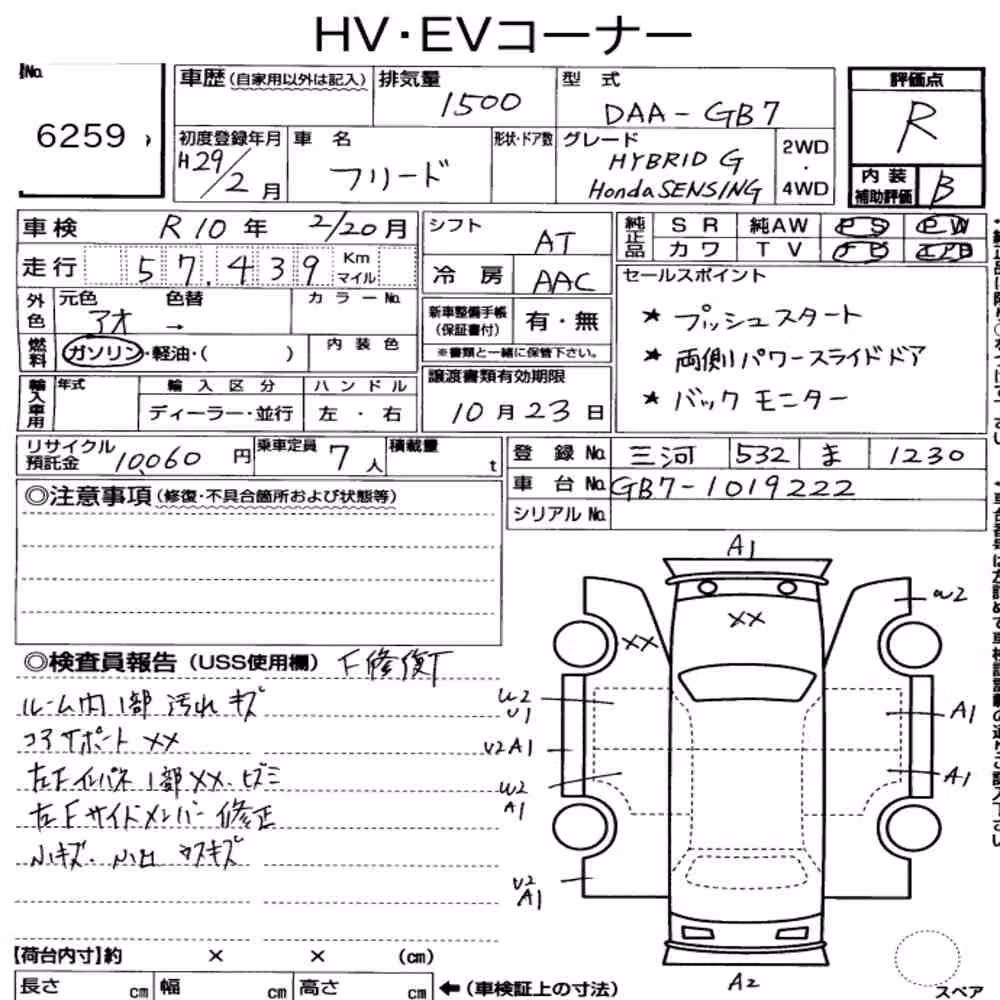 HV・EVコーナー
No. 6259
車歴 (自家用以外は記入)
排気量 1500
型式 DAA-GB7
評価点 R
内装補助評価 B
初度登録年月 H29/2月
車名 フリード
形状・ドア数
グレード HYBRID G
Honda SENSING
2WD・4WD
車検 R10年 2/20月
走行 57,439 Km マイル
外色 元色 アオ → 色替 カラーNo.
燃料 ガソリン・軽油・( )
内装色
輸入車用 年式
輸入区分 ディーラー・並行
ハンドル 左・右
シフト AT
冷房 AAC
新車整備手帳(保証書付) 有・無
※書類と一緒に保管下さい。
譲渡書類有効期限
10月23日
純正品 SR 純AW PS PW
カワ TV
セールスポイント
* プッシュスタート
* 両側パワースライドドア
* バックモニター
リサイクル預託金 10,060円
乗車定員 7人
積載量 t
登録No. 三河 532 ま 1230
車台No. GB7-1019222
シリアルNo.
◎注意事項(修復・不具合箇所および状態等)
◎検査員報告(USS使用欄) F修復
ルーム内1部汚れキズ
コアサポートXX
左Fインパネ1部XX、ヒズミ
左Fサイドメンバー修正
小キズ、小凹
A1
XX
XX
W2
W2
U1
U2 A1
W2
A1
U2
A1
A1
A1
A2
【荷台内寸】約 × × (cm)
長さ cm 幅 cm 高さ cm ←(車検証上の寸法)
スペア